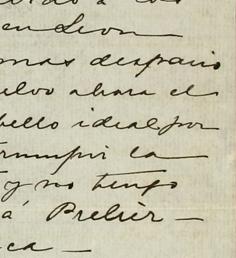 en Leon
mas despacio
elvo ahora el
bello ideal por
rrumpir la
y no tengo
á Prelier —
ca —